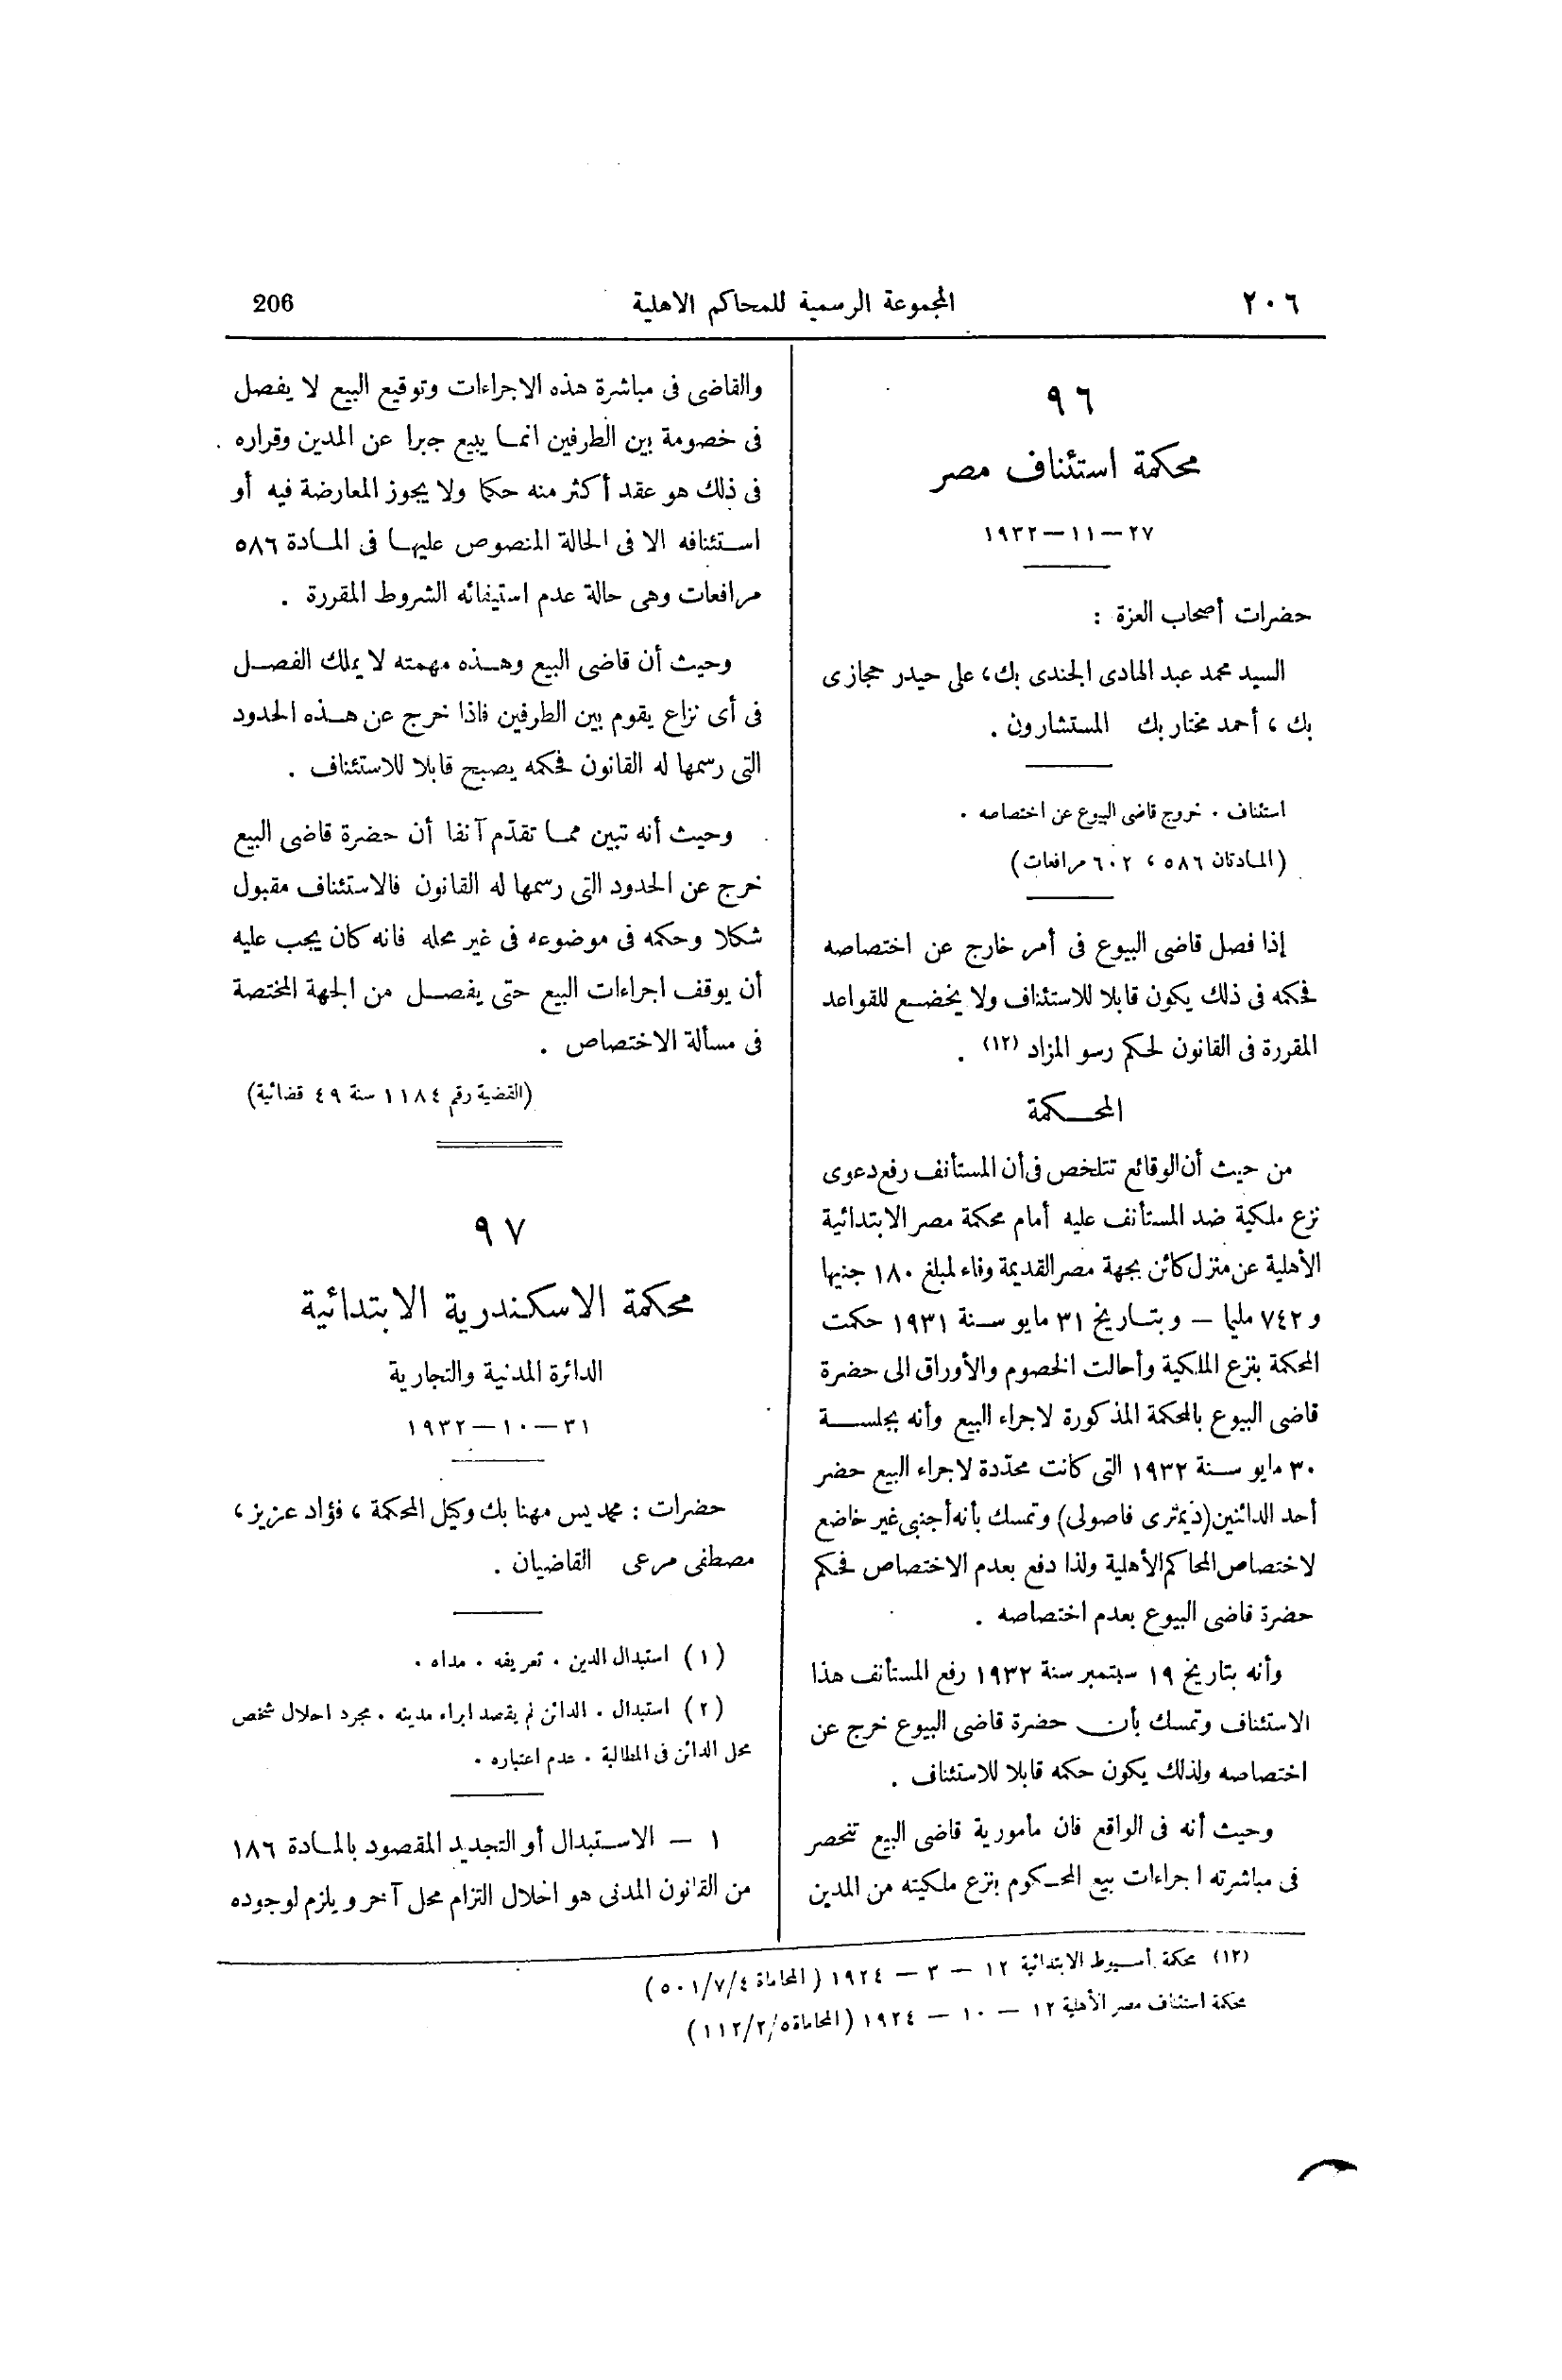 ٢٠٦
المجموعة الرسمية للمحاكم الاهلية
206
٩٦
محكمة استئناف مصر
٢٧—١١—١٩٣٢
حضرات أصحاب العزة :
السيد محمد عبد الهادى الجندى بك، على حيدر حجازى
بك ، أحمد مختار بك المستشارون .
استئناف . خروج قاضى البيوع عن اختصاصه .
(المادتان ٥٨٦ ، ٦٠٢ مرافعات)
إذا فصل قاضى البيوع فى أمر خارج عن اختصاصه
فحكمه فى ذلك يكون قابلا للاستئناف ولا يخضع للقواعد
المقررة فى القانون لحكم رسو المزاد (١٢) .
المحكمة
من حيث أن الوقائع تتلخص فى أن المستأنف رفع دعوى
نزع ملكية ضد المستأنف عليه أمام محكمة مصر الابتدائية
الأهلية عن منزل كائن بجهة مصر القديمة وفاء لمبلغ ١٨٠ جنيها
و ٧٤٢ مليما — وبتاريخ ٣١ مايو سنة ١٩٣١ حكمت
المحكمة بنزع الملكية وأحالت الخصوم والأوراق الى حضرة
قاضى البيوع بالمحكمة المذكورة لاجراء البيع وأنه بجلسة
٣٠ مايو سنة ١٩٣٢ التى كانت محدّدة لاجراء البيع حضر
أحد الدائنين (ديمترى فاصولى) وتمسك بأنه أجنبى غير خاضع
لاختصاص المحاكم الأهلية ولذا دفع بعدم الاختصاص فحكم
حضرة قاضى البيوع بعدم اختصاصه .
وأنه بتاريخ ١٩ سبتمبر سنة ١٩٣٢ رفع المستأنف هذا
الاستئناف وتمسك بأن حضرة قاضى البيوع خرج عن
اختصاصه ولذلك يكون حكمه قابلا للاستئناف .
وحيث أنه فى الواقع فان مأمورية قاضى البيع تنحصر
فى مباشرته اجراءات بيع المحكوم بنزع ملكيته من المدين
والقاضى فى مباشرة هذه الاجراءات وتوقيع البيع لا يفصل
فى خصومة بين الطرفين انما يبيع جبرا عن المدين وقراره
فى ذلك هو عقد أكثر منه حكما ولا يجوز المعارضة فيه أو
استئنافه الا فى الحالة المنصوص عليها فى المادة ٥٨٦
مرافعات وهى حالة عدم استيفائه الشروط المقررة .
وحيث أن قاضى البيع وهذه مهمته لا يملك الفصل
فى أى نزاع يقوم بين الطرفين فاذا خرج عن هذه الحدود
التى رسمها له القانون فحكمه يصبح قابلا للاستئناف .
وحيث أنه تبين مما تقدّم آنفا أن حضرة قاضى البيع
خرج عن الحدود التى رسمها له القانون فالاستئناف مقبول
شكلا وحكمه فى موضوعه فى غير محله فانه كان يجب عليه
أن يوقف اجراءات البيع حتى يفصل من الجهة المختصة
فى مسألة الاختصاص .
(القضية رقم ١١٨٤ سنة ٤٩ قضائية)
٩٧
محكمة الاسكندرية الابتدائية
الدائرة المدنية والتجارية
٣١—١٠—١٩٣٢
حضرات : محمد يس مهنا بك وكيل المحكمة ، فؤاد عزيز ،
مصطفى مرعى القاضيان .
(١) استبدال الدين . تعريفه . مداه .
(٢) استبدال . الدائن لم يقصد ابراء مدينه . مجرد احلال شخص
محل الدائن فى المطالبة . عدم اعتباره .
١ — الاستبدال أو التجديد المقصود بالمادة ١٨٦
من القانون المدنى هو احلال التزام محل آخر ويلزم لوجوده
(١٢) محكمة أسيوط الابتدائية ١٢ — ٣ — ١٩٢٤ (المحاماة ٥٠١/٧/٤)
محكمة استئناف مصر الأهلية ١٢ — ١٠ — ١٩٢٤ (المحاماة ١١٢/٢/٥)